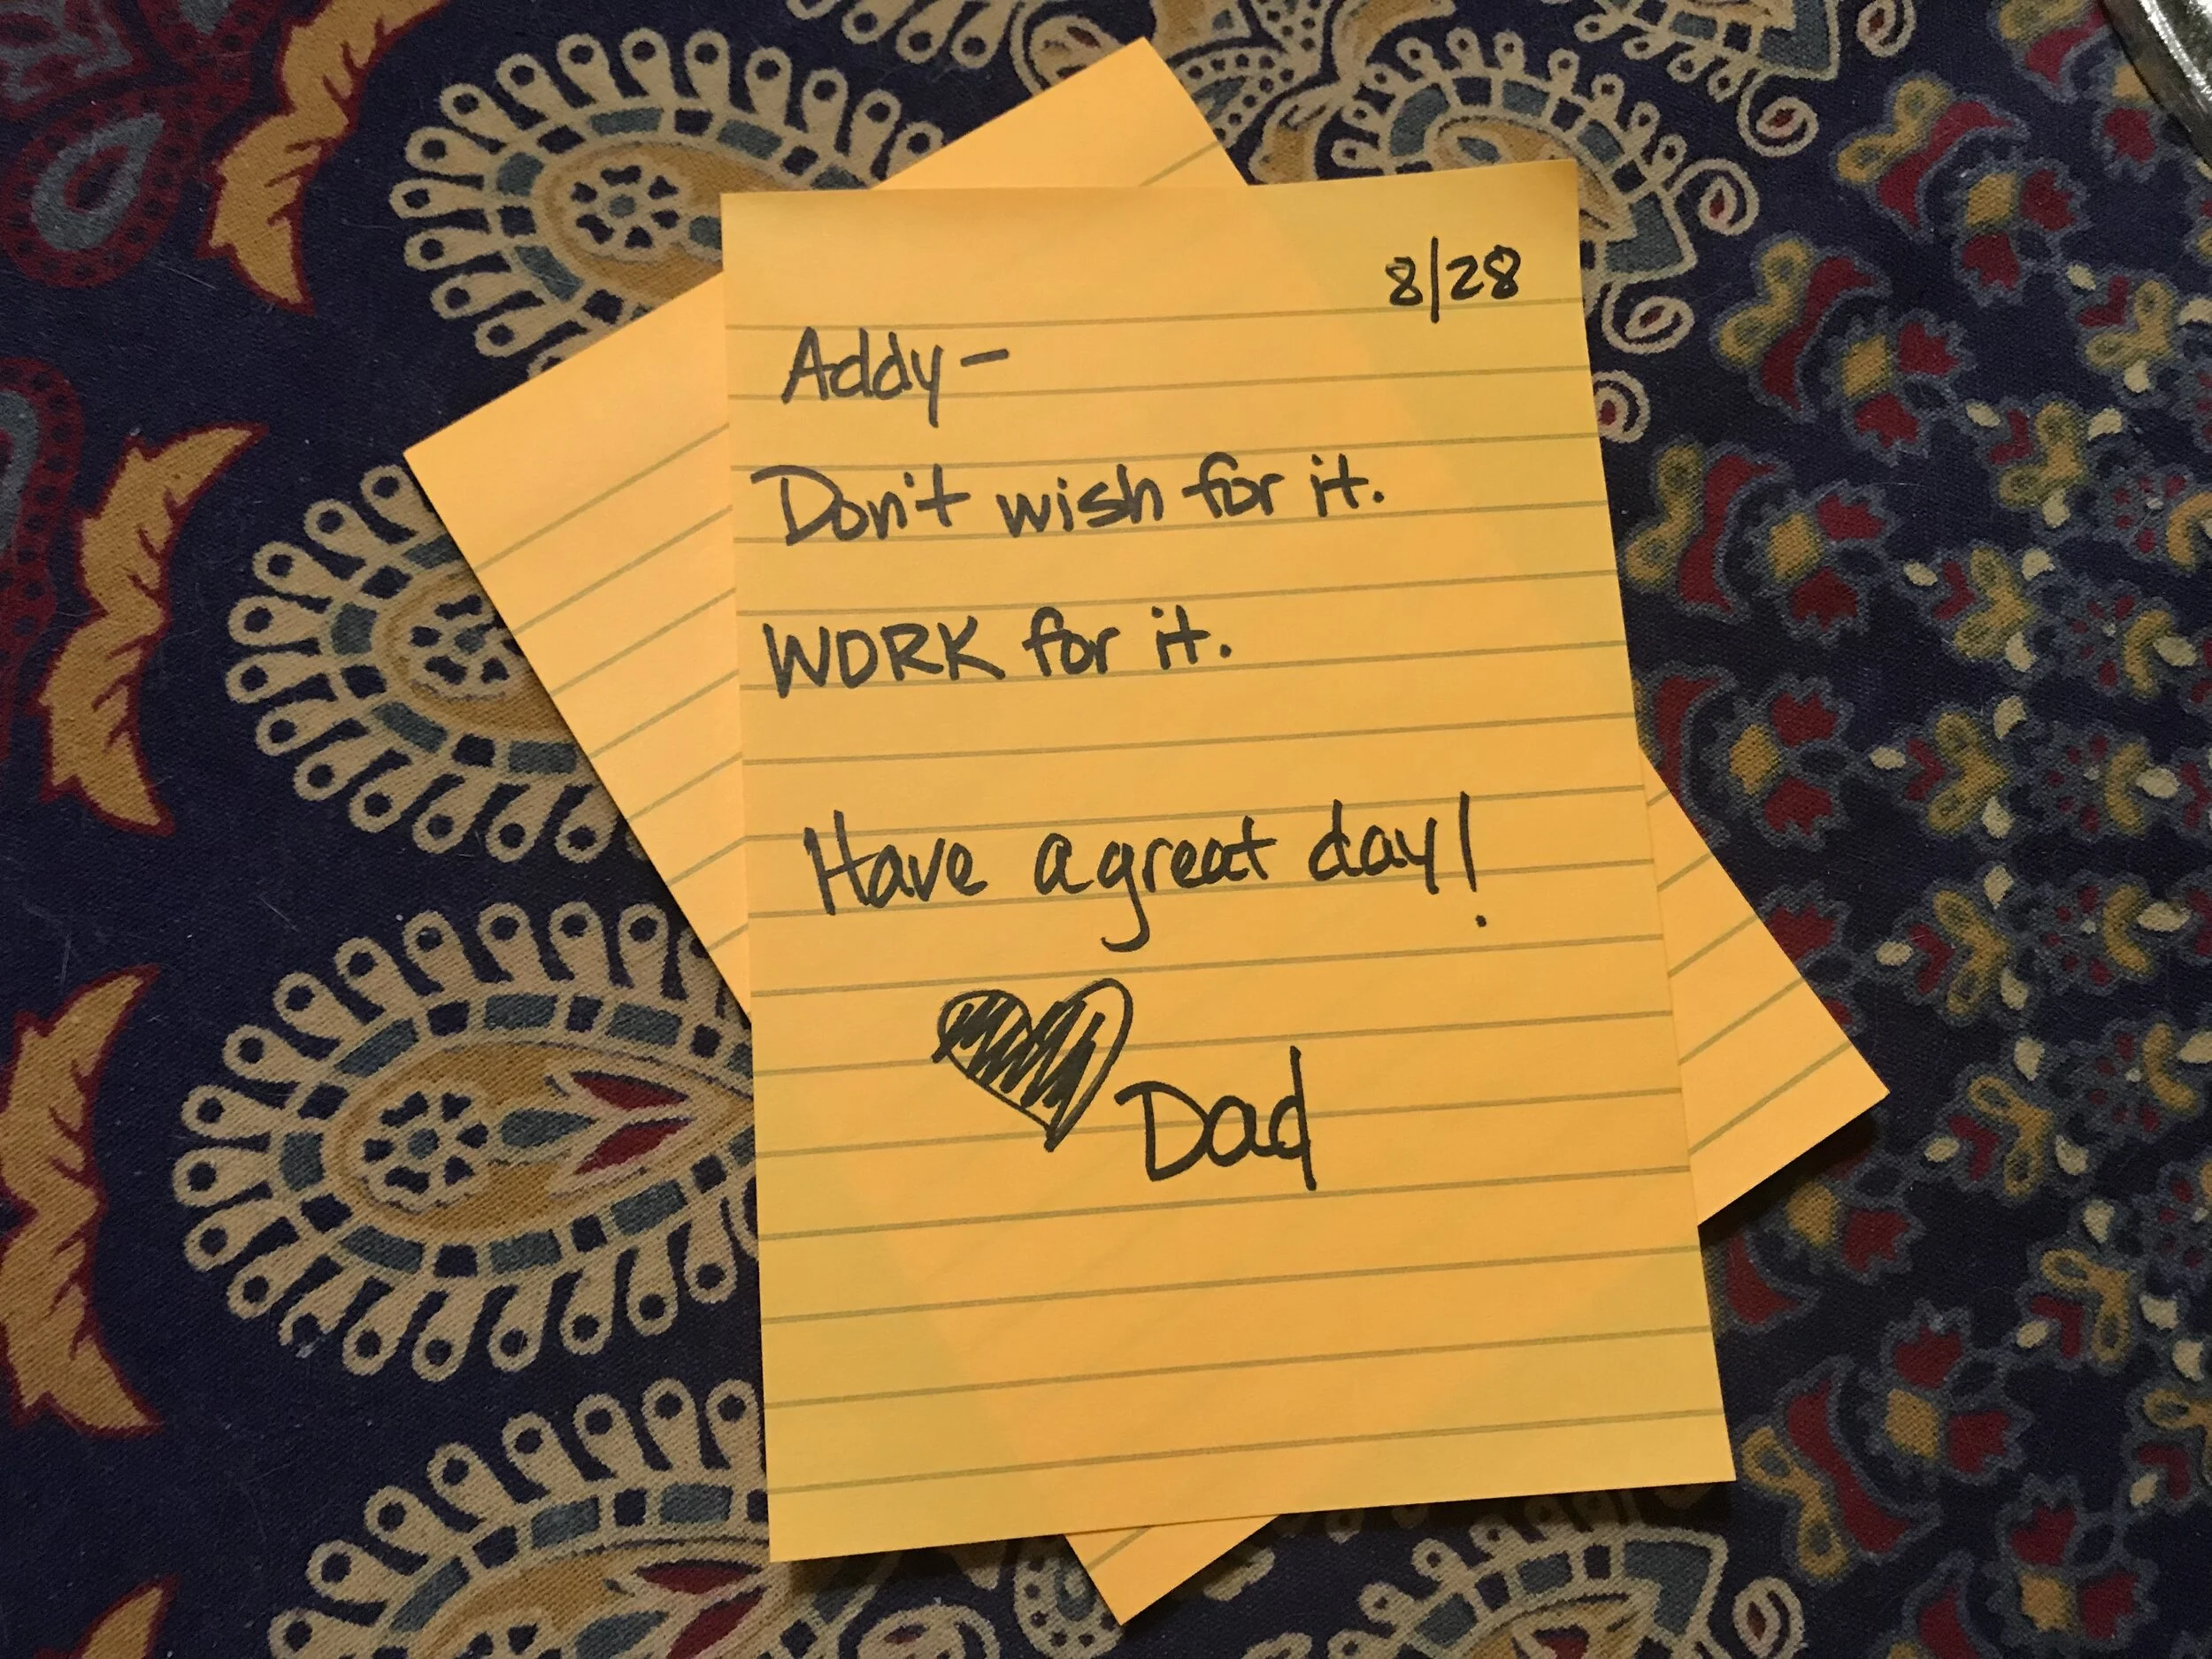 8/28
Addy-
Don't wish for it.
WORK for it.
Have a great day!
Dad